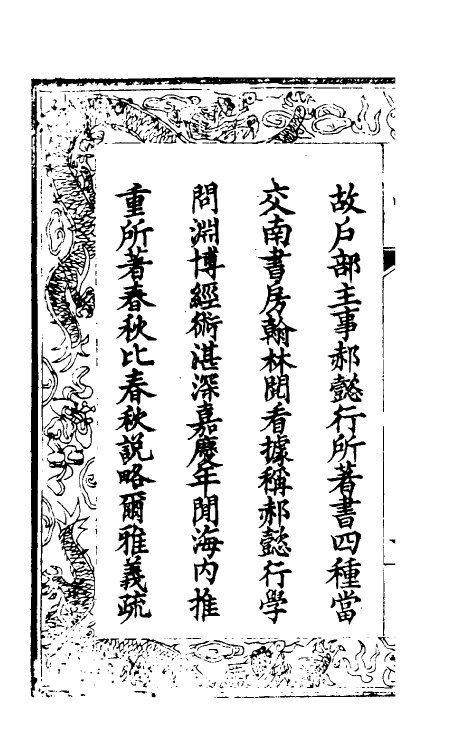 故戶部主事郝懿行所著書四種當
交南書房翰林閱看據稱郝懿行學
問淵博經術湛深嘉慶年聞海內推
重所著春秋比春秋說略爾雅義疏